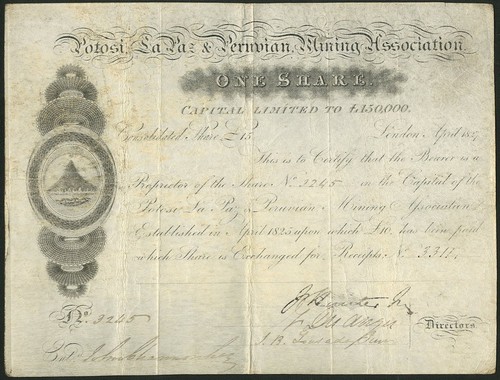 Potosi, La Paz & Peruvian, Mining Association.
ONE SHARE.
CAPITAL LIMITED TO £150,000.
Consolidated Share £15 London April 182
This is to Certify that the Bearer is a
Proprietor of the Share No. 3245 in the Capital of the
Potosi La Paz & Peruvian Mining Association
Established in April 1825 upon which £10, has been paid
which Share is Exchanged for Receipts, No. 3317
No. 3245
Directors